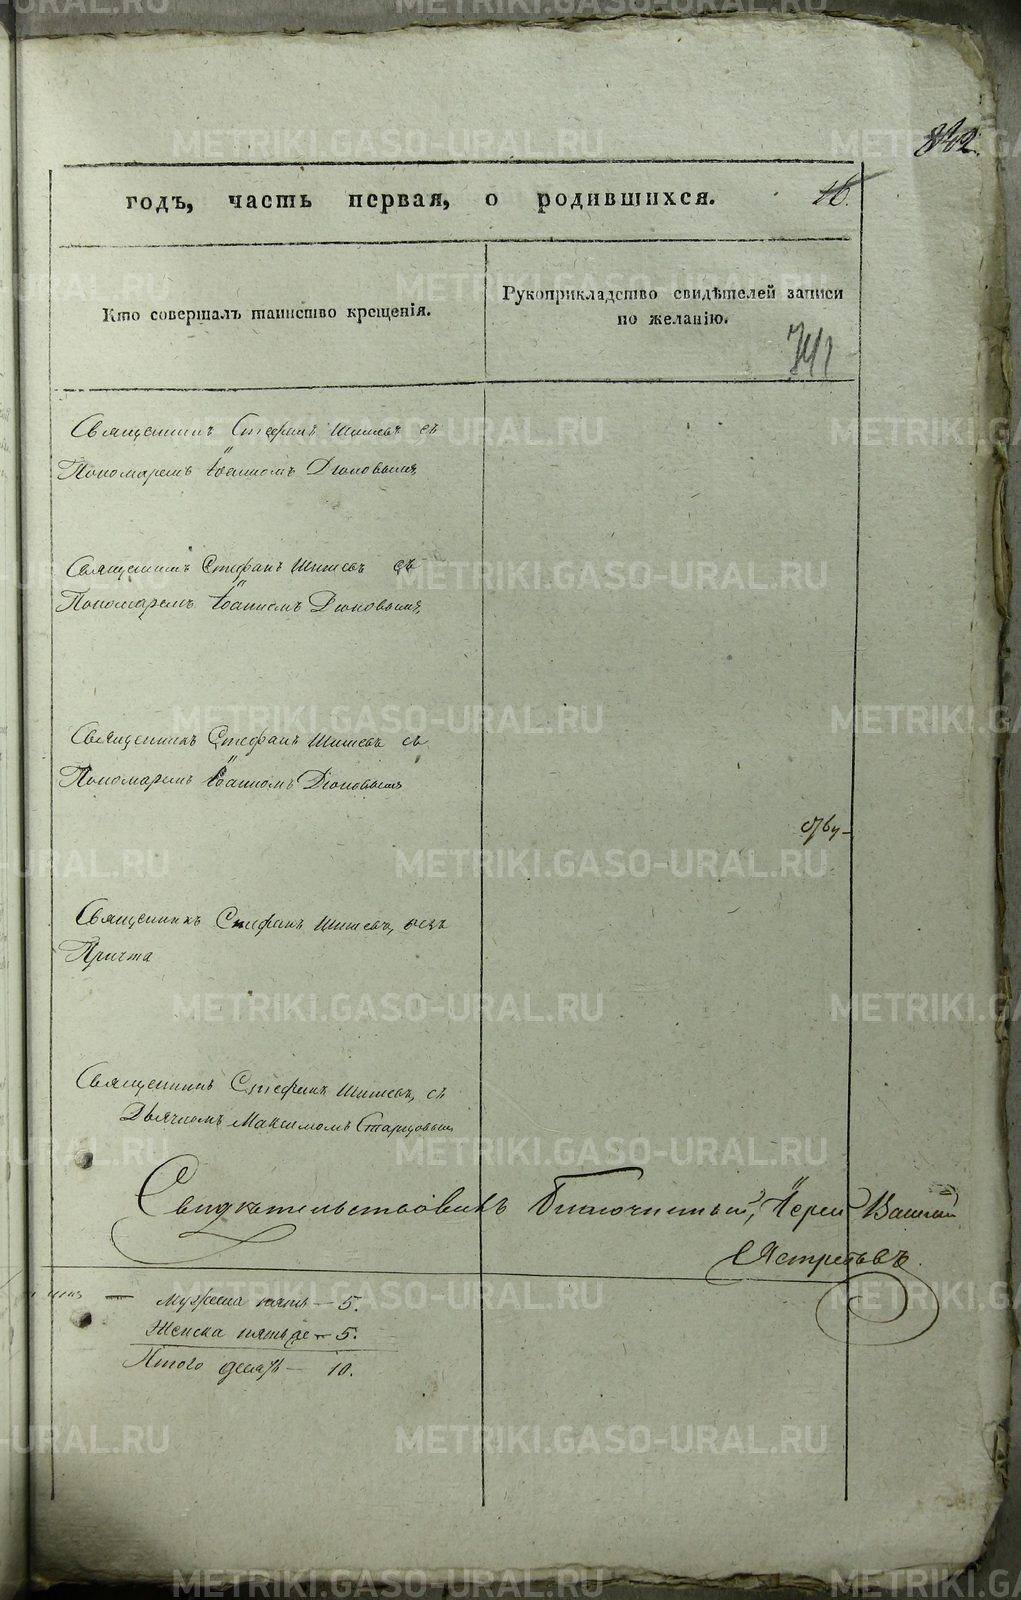 годъ, часть первая, о родившихся.
16.
Кто совершалъ таинство крещенія.
Рукоприкладство свидѣтелей записи
по желанію.
Священникъ Стефанъ Шишевъ съ
Пономаремъ Іоанномъ Дюковымъ
Священникъ Стефанъ Шишевъ съ
Пономаремъ Іоанномъ Дюковымъ
Священникъ Стефанъ Шишевъ съ
Пономаремъ Іоанномъ Дюковымъ
Священникъ Стефанъ Шишевъ, безъ
Причта
Священникъ Стефанъ Шишевъ, съ
Дьячкомъ Максимомъ Старцовымъ
Свидѣтельствовалъ Благочинный, Іерей Василій
Ястребовъ.
Мужеска пять — 5.
Женска пять же — 5.
Итого десять — 10.
METRIKI.GASO-URAL.RU